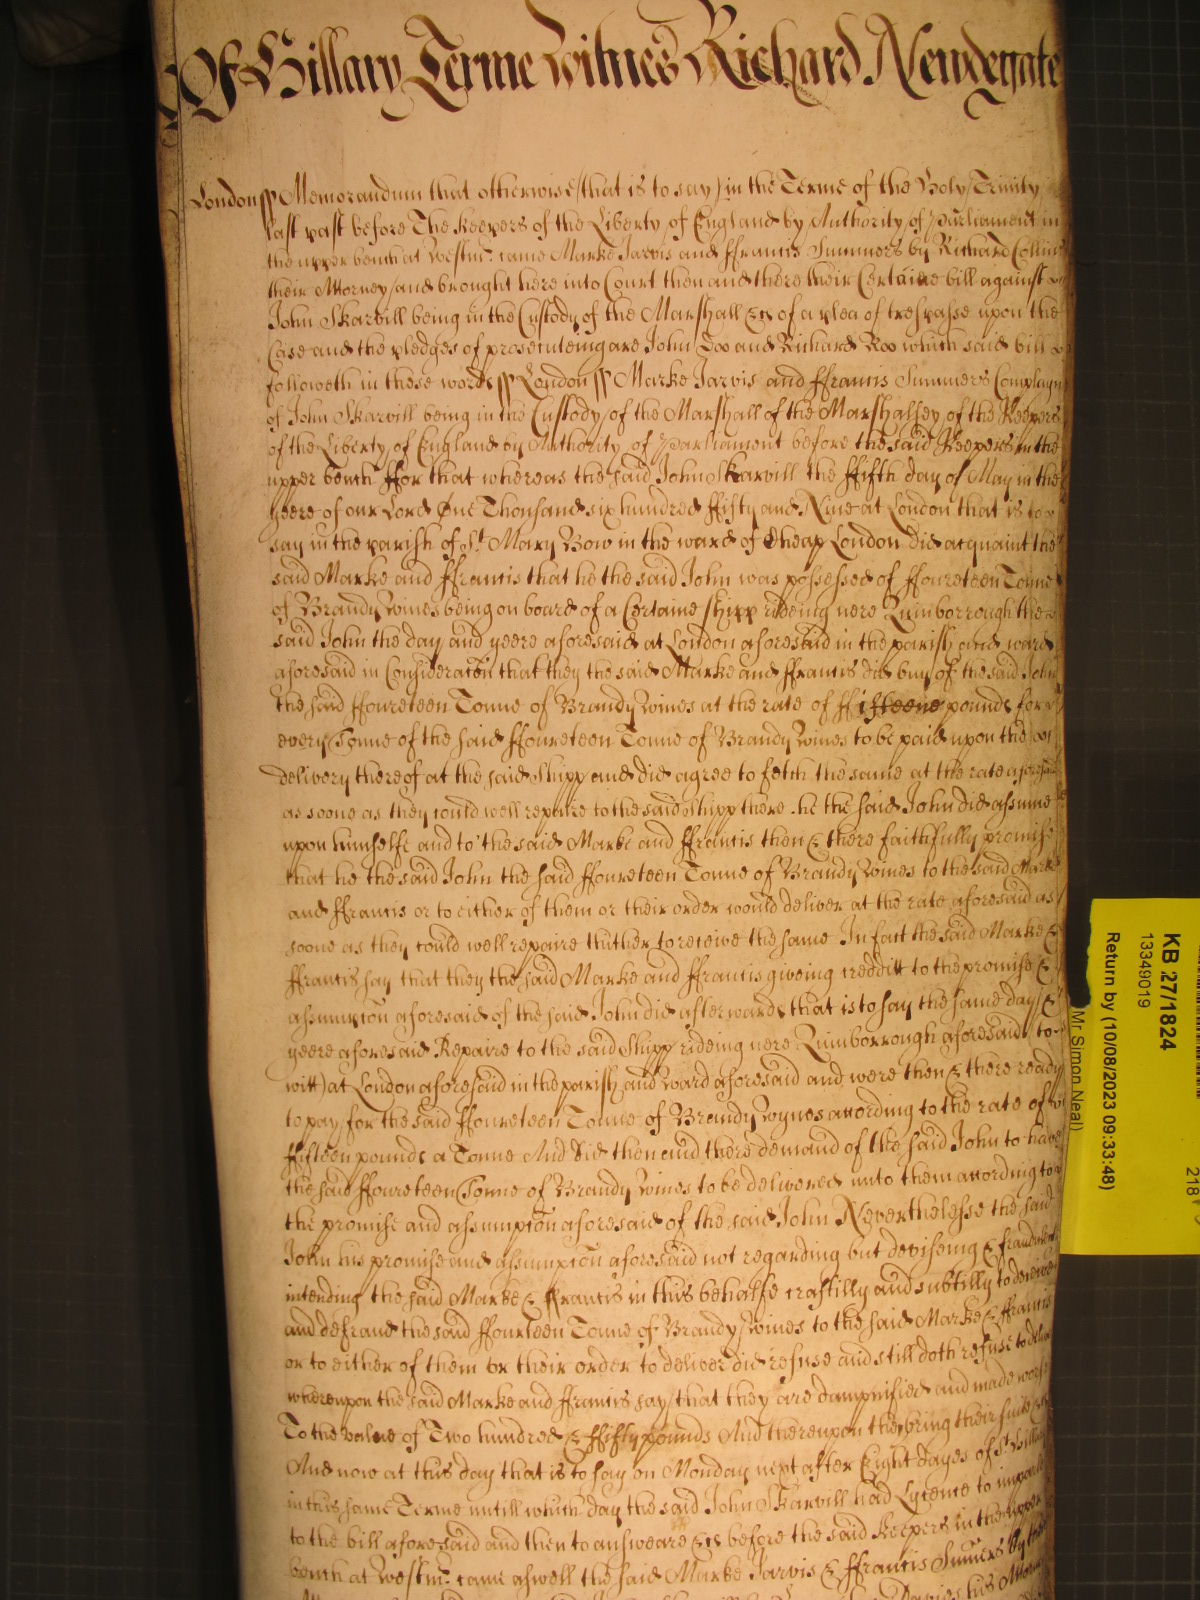 Of Hillary Terme Witnes Richard Newdegate
London ss Memorandum that otherwise (that is to say) in the Terme of the Holy Trinity
last past before The Keepers of the Liberty of England by Authority of Parliament in
the upper bench at Westmr. came Marke Jarvis and ffrancis Summers by Richard Collins
their Attorney and brought here into Court then and there their Certaine bill against
John Skarvill being in the Custody of the Marshall &c of a plea of trespasse upon the
Case and the pledges of prosecuteing are John Doo and Richard Roo which said bill
followeth in these words ss London ss Marke Jarvis and ffrancis Summers Complayn
of John Skarvill being in the Custody of the Marshall of the Marshalsey of the Keepers
of the Liberty of England by Authority of Parliament before the said Keepers in the
upper bench ffor that whereas the said John Skarvill the ffifth day of May in the
yeere of our Lord One Thousand six hundred ffifty and Nine at London that is to
say in the parish of St. Mary Bow in the ward of Cheap London did acquaint the
said Marke and ffrancis that he the said John was possessed of ffoureteen Tonne
of Brandy Wines being on board of a Certaine shipp rideing nere Quinborrough the
said John the day and yeere aforesaid at London aforesaid in the parish and ward
aforesaid in Consideracon that they the said Marke and ffrancis did buy of the said John
the said ffoureteen Tonne of Brandy Wines at the rate of ffifteene pounds for
every Tonne of the said ffoureteen Tonne of Brandy Wines to be paid upon the
delivery thereof at the said Shipp and did agree to fetch the same at the rate aforesaid
as soone as they could well repaire to the said Shipp there he the said John did assume
upon himselfe and to the said Marke and ffrancis then & there faithfully promise
that he the said John the said ffoureteen Tonne of Brandy Wines to the said Marke
and ffrancis or to either of them or their order would deliver at the rate aforesaid as
soone as they could well repaire thither to receive the same In fact the said Marke &
ffrancis say that they the said Marke and ffrancis giveing credditt to the promise &
assumpcon aforesaid of the said John did afterwards that is to say the same day &
yeere aforesaid Repaire to the said Shipp rideing nere Quinborrough aforesaid to
witt) at London aforesaid in the parish and Ward aforesaid and were then & there ready
to pay for the said ffoureteen Tonne of Brandy Wynes according to the rate of
ffifteen pounds a Tonne And did then and there demand of the said John to have
the said ffoureteen Tonne of Brandy Wines to be delivered unto them according to
the promise and assumpcon aforesaid of the said John Neverthelesse the said
John his promise and assumpcon aforesaid not regarding but deviseing & fraudulently
intending the said Marke & ffrancis in this behalfe craftilly and subtilly to deceive
and defraud the said ffourteen Tonne of Brandy Wines to the said Marke & ffrancis
or to either of them or their order to deliver did refuse and still doth refuse to deliver
whereupon the said Marke and ffrancis say that they are dampnified and made worse
To the value of Two hundred & ffifty pounds And thereupon they bring their suite &c
And now at this day that is to say on Monday next after Eight dayes of St. Hillary
in this same Terme untill which day the said John Skarvill had Lycence to imparle
to the bill aforesaid and then to answeare &c before the said Keepers in the upper
bench at Westmr. came aswell the said Marke Jarvis & ffrancis Sumers by their
KB 27/1824
13349019
Return by (10/08/2023 09:33:48)
Mr Simon Neal)